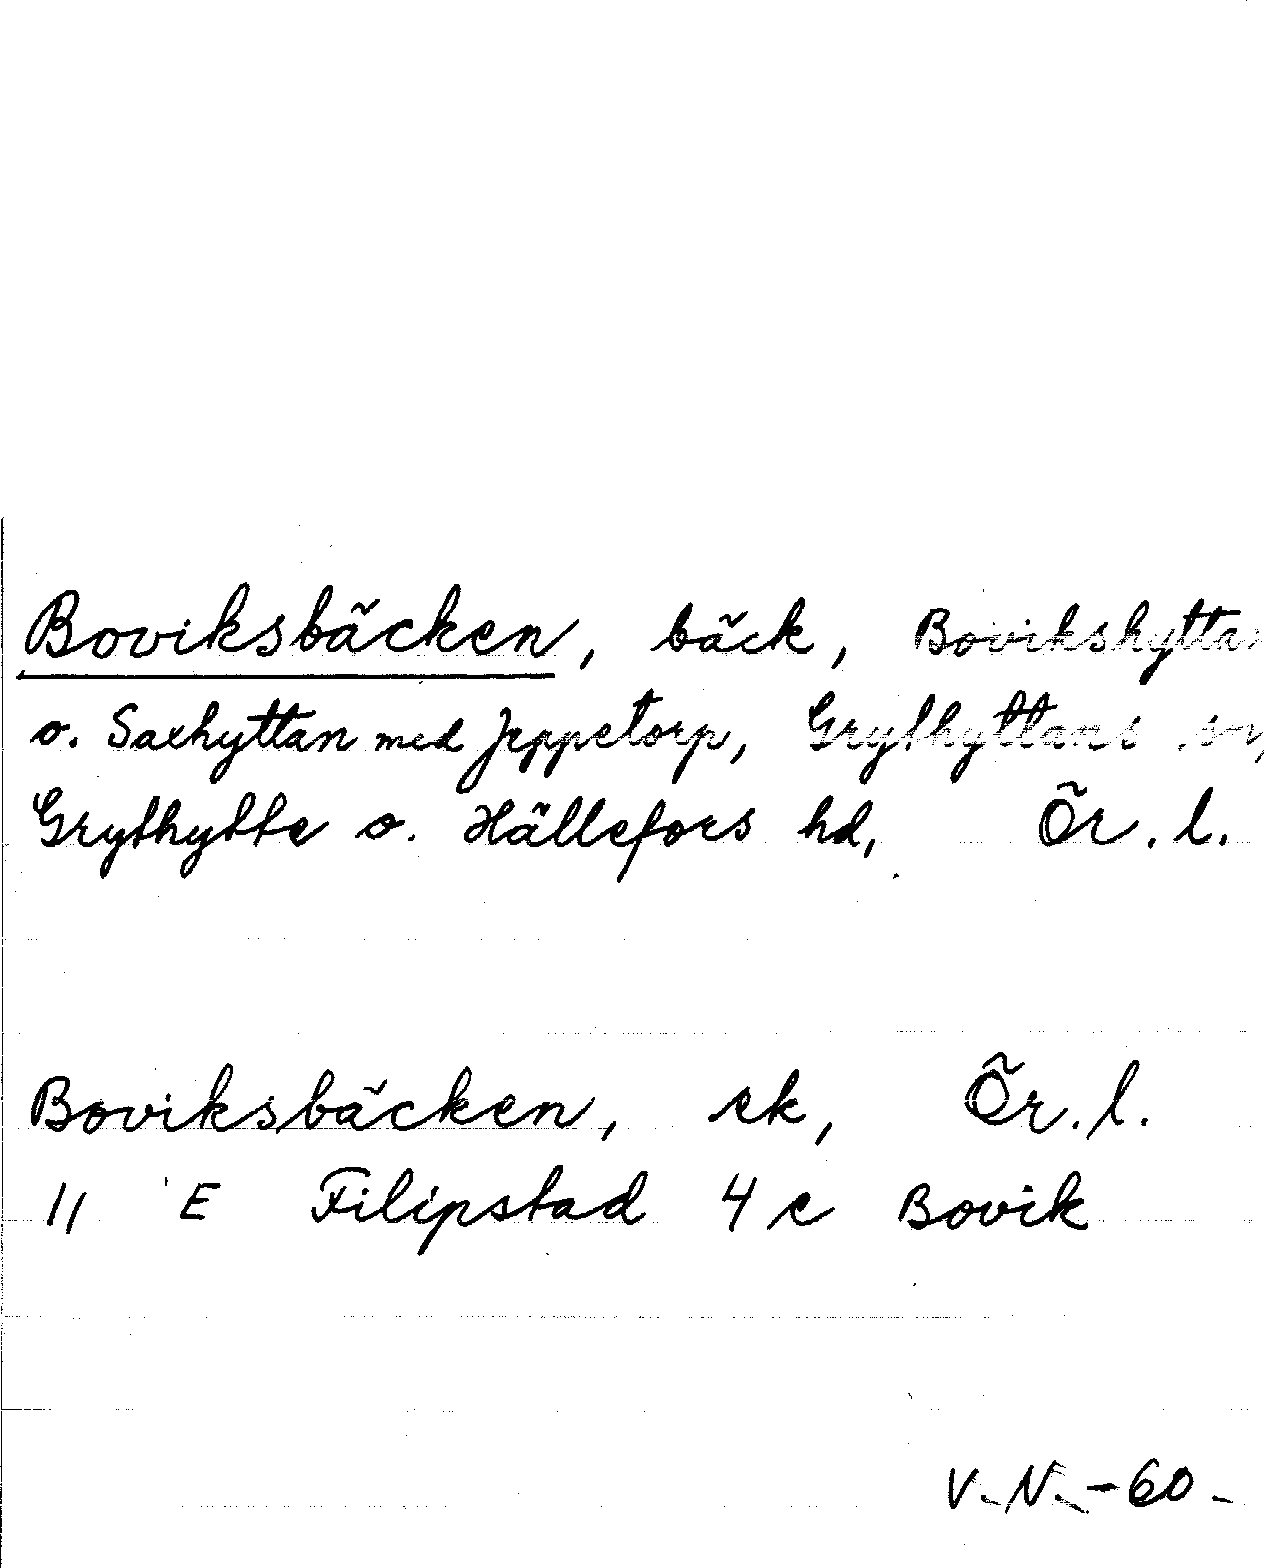 Boviksbäcken, bäck, Bovikshyttan
o. Saxhyttan med Jeppetorp, Grythyttans sn,
Grythytte o. Hällefors hd, Ör. l.
Boviksbäcken, ek, Ör. l.
11 E Filipstad 4 c Bovik
V. N. -60-